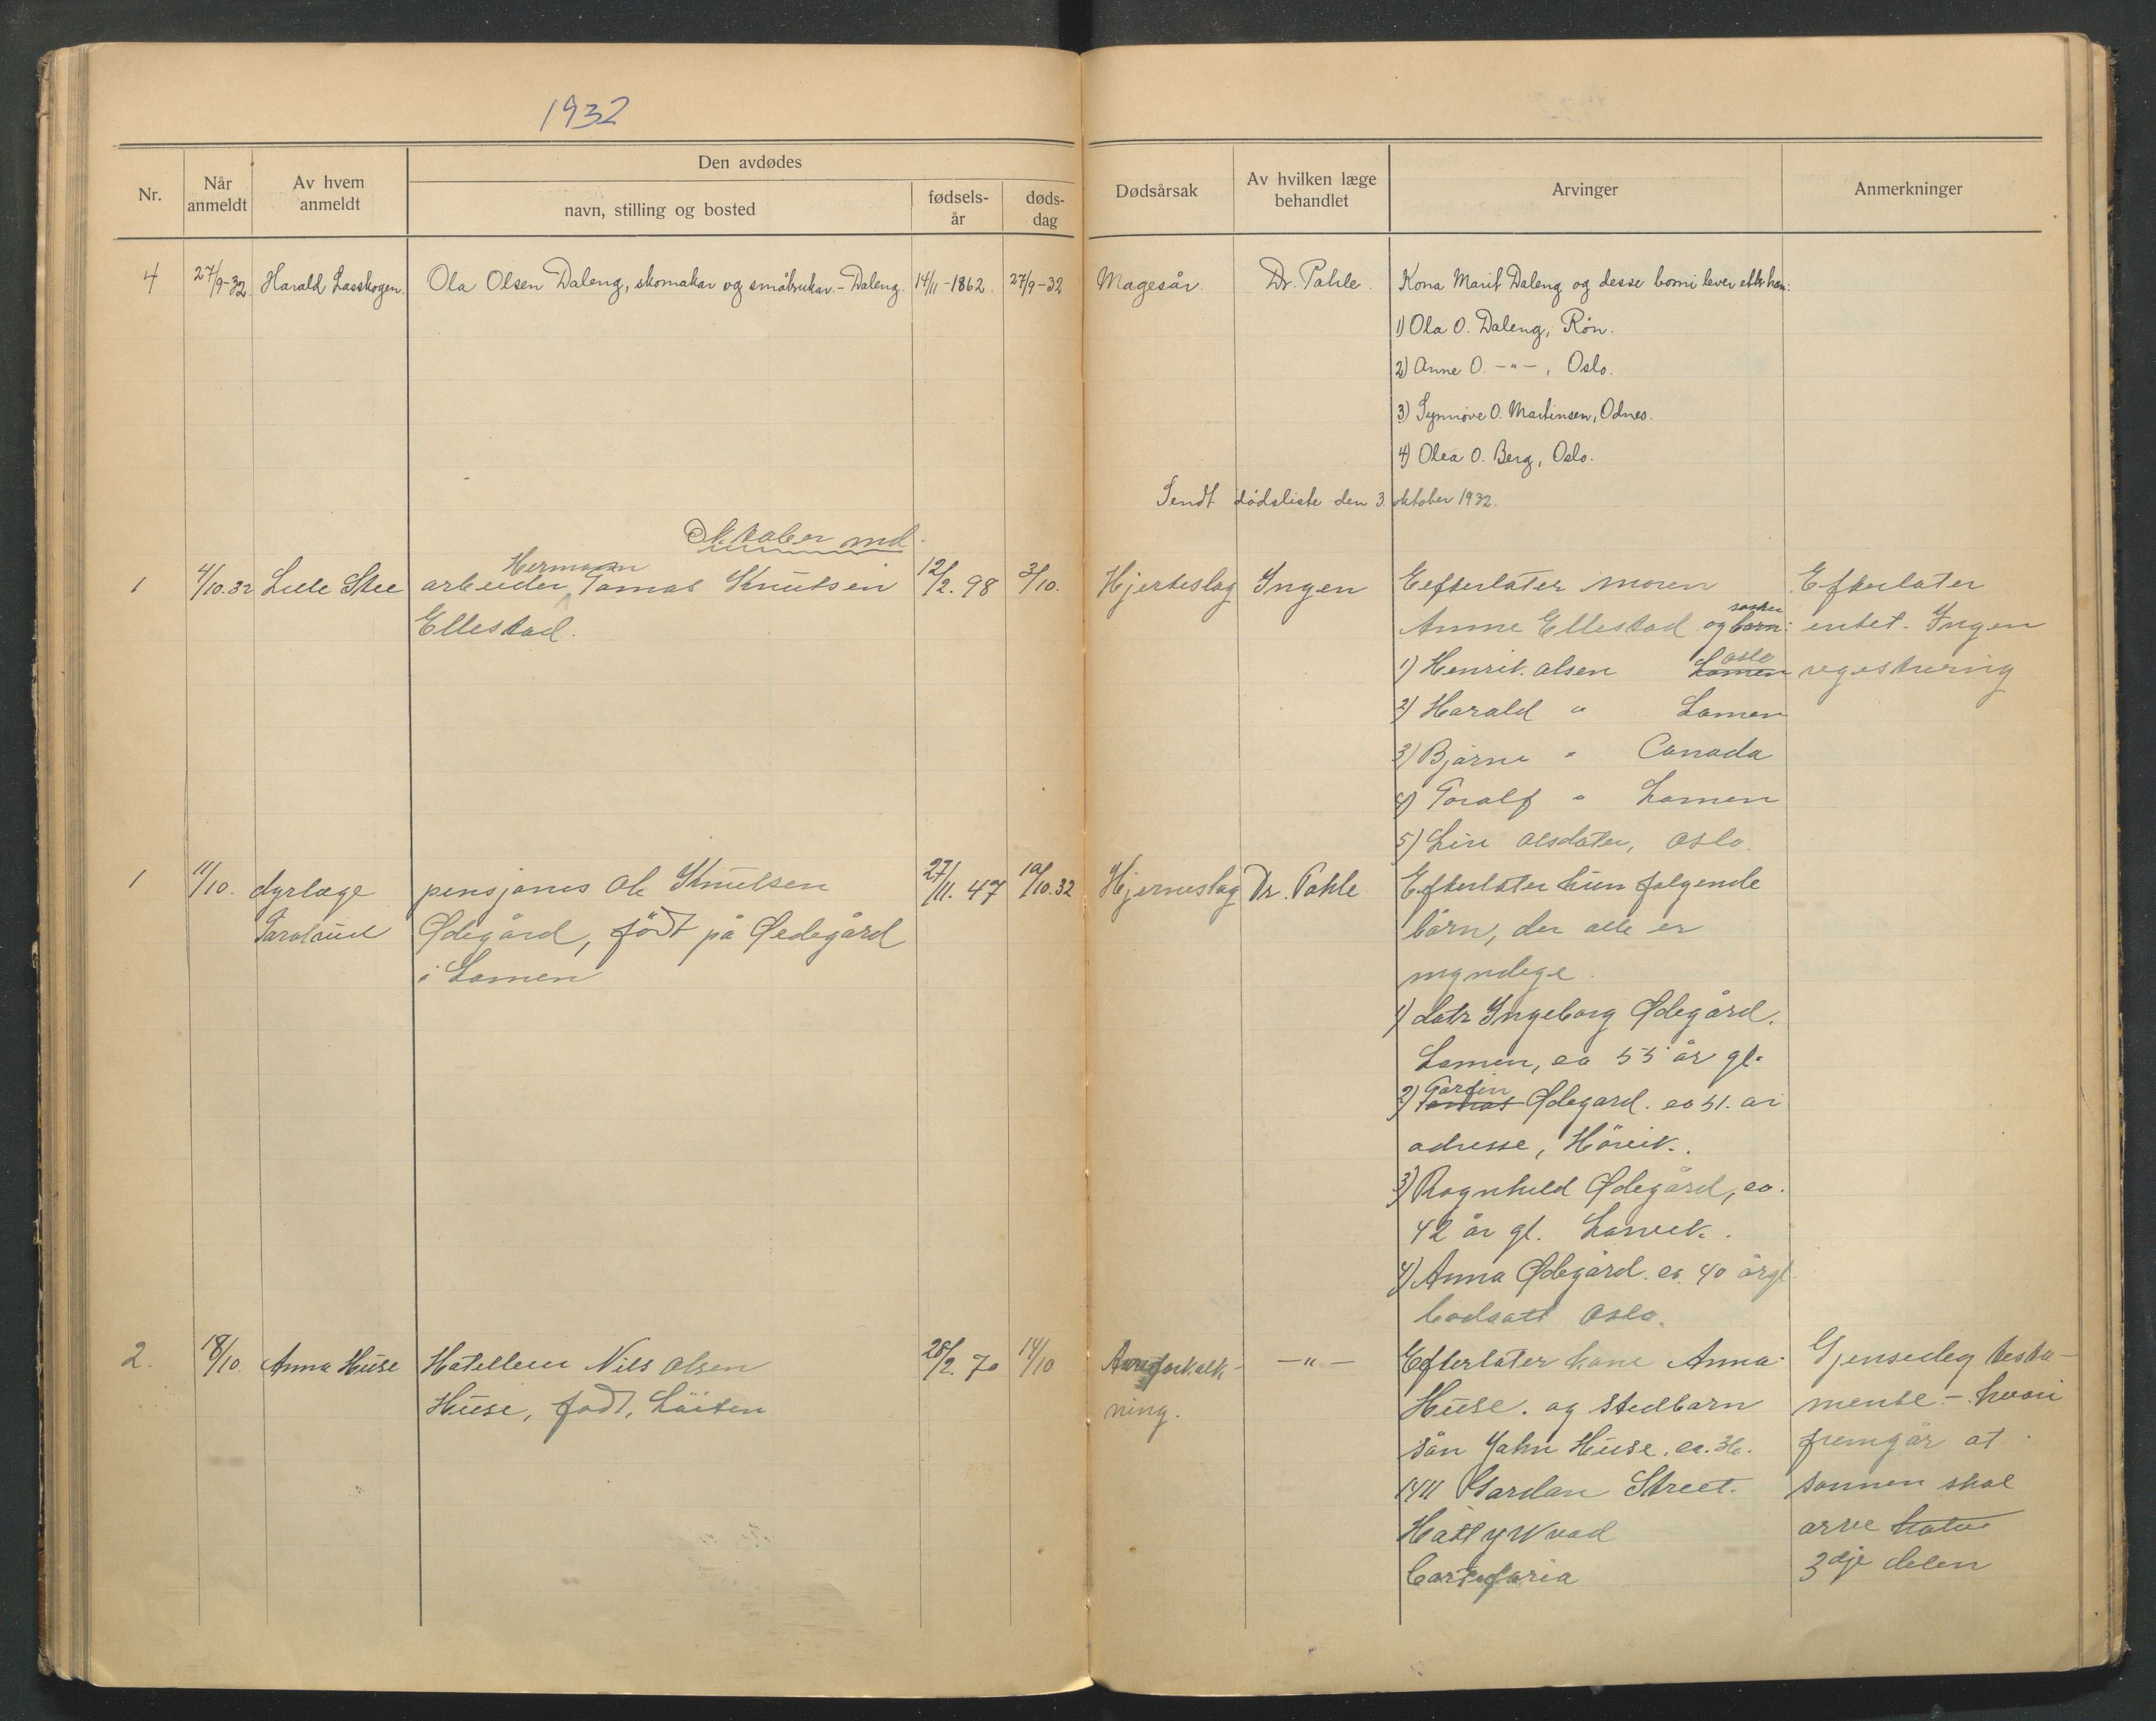 1932
Nr.
Når anmeldt
Av hvem anmeldt
Den avdødes
navn, stilling og bosted
fødsels-år
døds-dag
Dødsårsak
Av hvilken læge behandlet
Arvinger
Anmerkninger
4 27/9-32 Harald Lasskogen. Ola Olsen Daleng, skomakar og småbrukar. - Daleng. 14/11-1862. 27/9-32 Magesår. Dr. Pahle. Kona Marit Daleng og desse borni lever etter han:
1) Ola O. Daleng, Røn.
2) Anne O. -"-, Oslo.
3) Synnøve O. Martinsen, Odnes.
4) Olea O. Berg, Oslo.
Sendt dødsliste den 3. oktober 1932.
Oktober md.
Hermann
1 4/10.32 arbeider Tomas Knutsen 12/2. 98 3/10. Hjerteslag Ingen Eefterlater moren Efterlater
Ellestad. Anne Ellestad og barn: entet. Ingen
Oslo
1) Henrik Olsen Lomen regestrering
2) Harald " Lomen
3) Bjarne " Canada
4) Toralf " Lomen
5) Liv Olsdater, Oslo.
1 11/10. dyrlæge pensjonis Ole Knutsen 27/11. 47 10/10.32 Hjerneslag Dr. Pahle Efterlater hun følgende
Ødegård, födt på Ødegård börn, der alle er
i Lomen myndige.
1) datr Ingeborg Ødegård.
Lomen, ca 55 år gl.
2) Ødegard. ca 51. år
adresse, Hövik.
3) Ragnhild Ødegård, ca.
42 år gl. Larvik.
4) Anna Ødegård. ca. 40 årgl
bodsatt Oslo.
2. 18/10. Anna Huse Nils Olsen 28/2. 70 14/10 Aareforkalk- -"- Efterlater kone Anna Gjensedeg testa-
Huse, född, Löiten ning. Huse. og stedbarn mente - hvori
sön John Huse. ca. 36. fremgår at
1411 Gordon Street. sönnen skal
arve halve
3dje delen